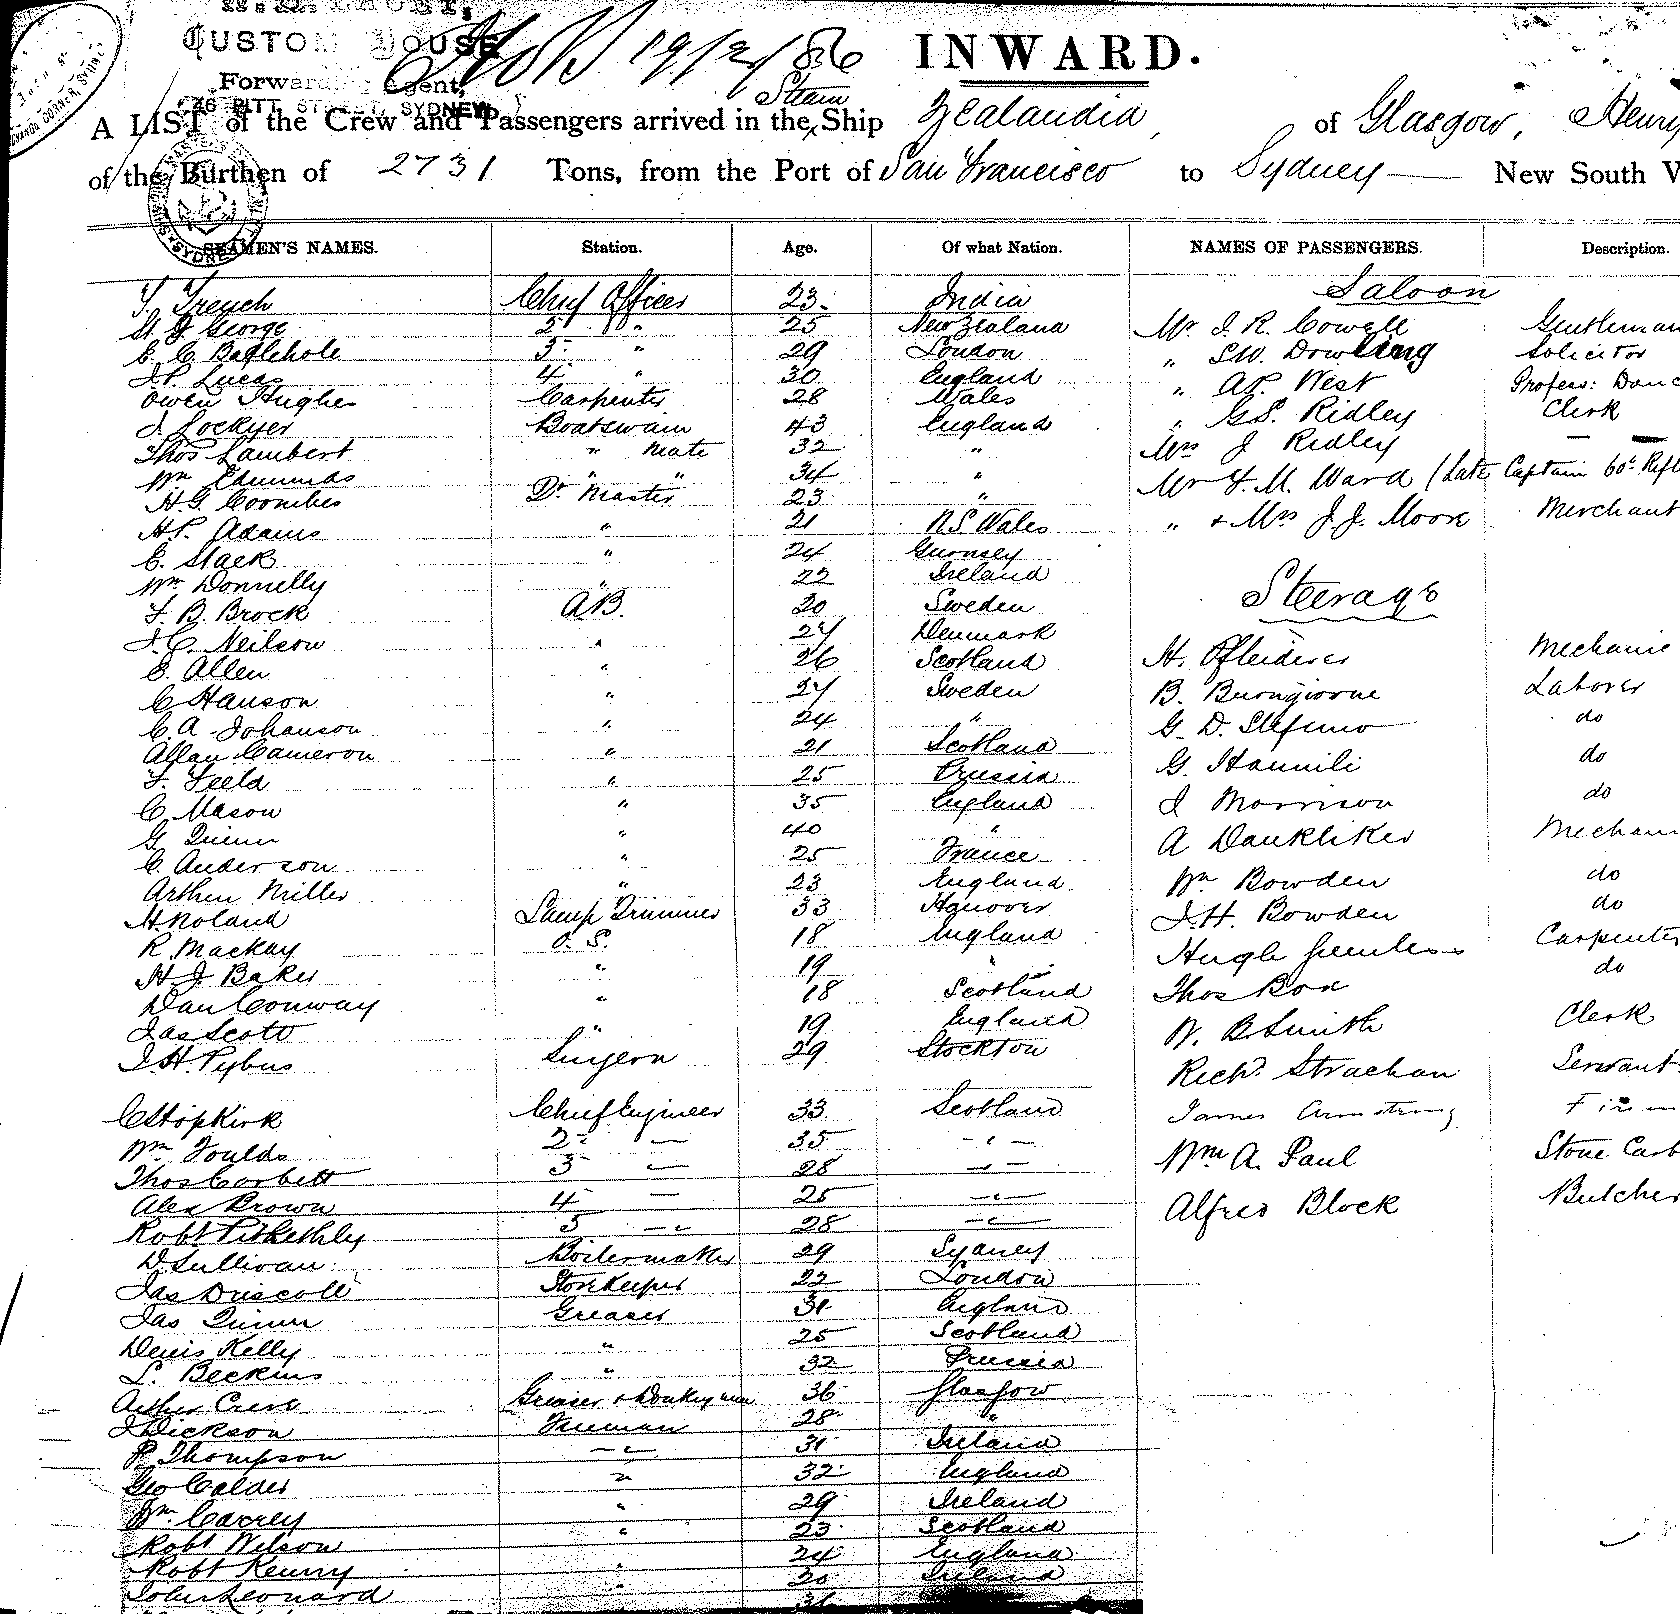 CUSTOM HOUSE
Forward Agent,
PITT STREET, SYDNEY
19/2/86
INWARD.
A LIST of the Crew and Passengers arrived in the Steam Ship Zealandia of Glasgow, Henry
of the Burthen of 2731 Tons, from the Port of San Francisco to Sydney New South W
SEAMEN'S NAMES. Station. Age. Of what Nation. NAMES OF PASSENGERS. Description.
Saloon
T. French Chief Officer 23 India
George 2 " 25 New Zealand Mr J. R. Cowell Gentleman
E. C. Battlehole 3 " 29 London " S.W. Dowling Solicitor
J.P. Lucas 4 " 30 England " A.P. West Profess: Danc
Owen Hughes Carpenter 28 Wales " G.S. Ridley Clerk
J. Lockyer Boatswain 43 England Mrs J Ridley
Thos Lambert " Mate 32 " Mr F. M. Ward (Late Captain 60th Rifl
Wm Edmunds " " 34 "
H.G. Coombes Qr Master 23 " " & Mrs J. J. Moore Merchant
H.P. Adams " 21 N.S. Wales
E. Stack " 24 Guernsey
Wm Donnelly " 22 Ireland Steerage
F. B. Brock A.B. 20 Sweden
J. C. Neilson " 24 Denmark H. Pfleiderer Mechanic
E. Allen " 26 Scotland B. Buongiorne Laborer
C Hanson " 27 Sweden G. D. Stefano do
C. A. Johanson " 24 " G. Hannili do
Allan Cameron " 21 Scotland
F. Feeld " 25 Prussia J Morrison do
C. Mason " 35 England A Dankliker Mechani
G. Quinn " 40 "
C. Anderson " 25 France Wm Bowden do
Arthur Miller " 23 England J. H. Bowden do
H. Noland Lamp Trimmer 33 Hanover Hugh Carpenter
R Mackay O. S. 18 England Thos Box do
H. J. Baker " 19 "
Dan Conway " 18 Scotland W. B. Smith Clerk
Jas Scott " 19 England
J. H. Pybus Surgeon 29 Stockton Richd. Strachan Servant
C Hopkirk Chief Engineer 33 Scotland James Armstrong Firem
Wm Foulds 2 — 35 — " — Wm A. Paul Stone Carv
Thos Corbett 3 — 28 — " —
Alex Brown 4 — 25 — " — Alfred Block Butcher
Robt Pitkethly 5 — " 28 — " —
D. Sullivan Boilermaker 29 Sydney
Jas Driscoll Storekeeper 22 London
Jas Quinn Greaser 31 England
Denis Kelly " 25 Scotland
L. Beckins " 32 Prussia
Arthur Greaser & Donkeyman 36 Glasgow
J Dickson Fireman 28 "
R Thompson — " 31 Ireland
Geo Calder " 32 England
Wm. Carrey " 29 Ireland
Robt Wilson " 23 Scotland
Robt Kenny " 24 England
John Leonard " 30 Ireland